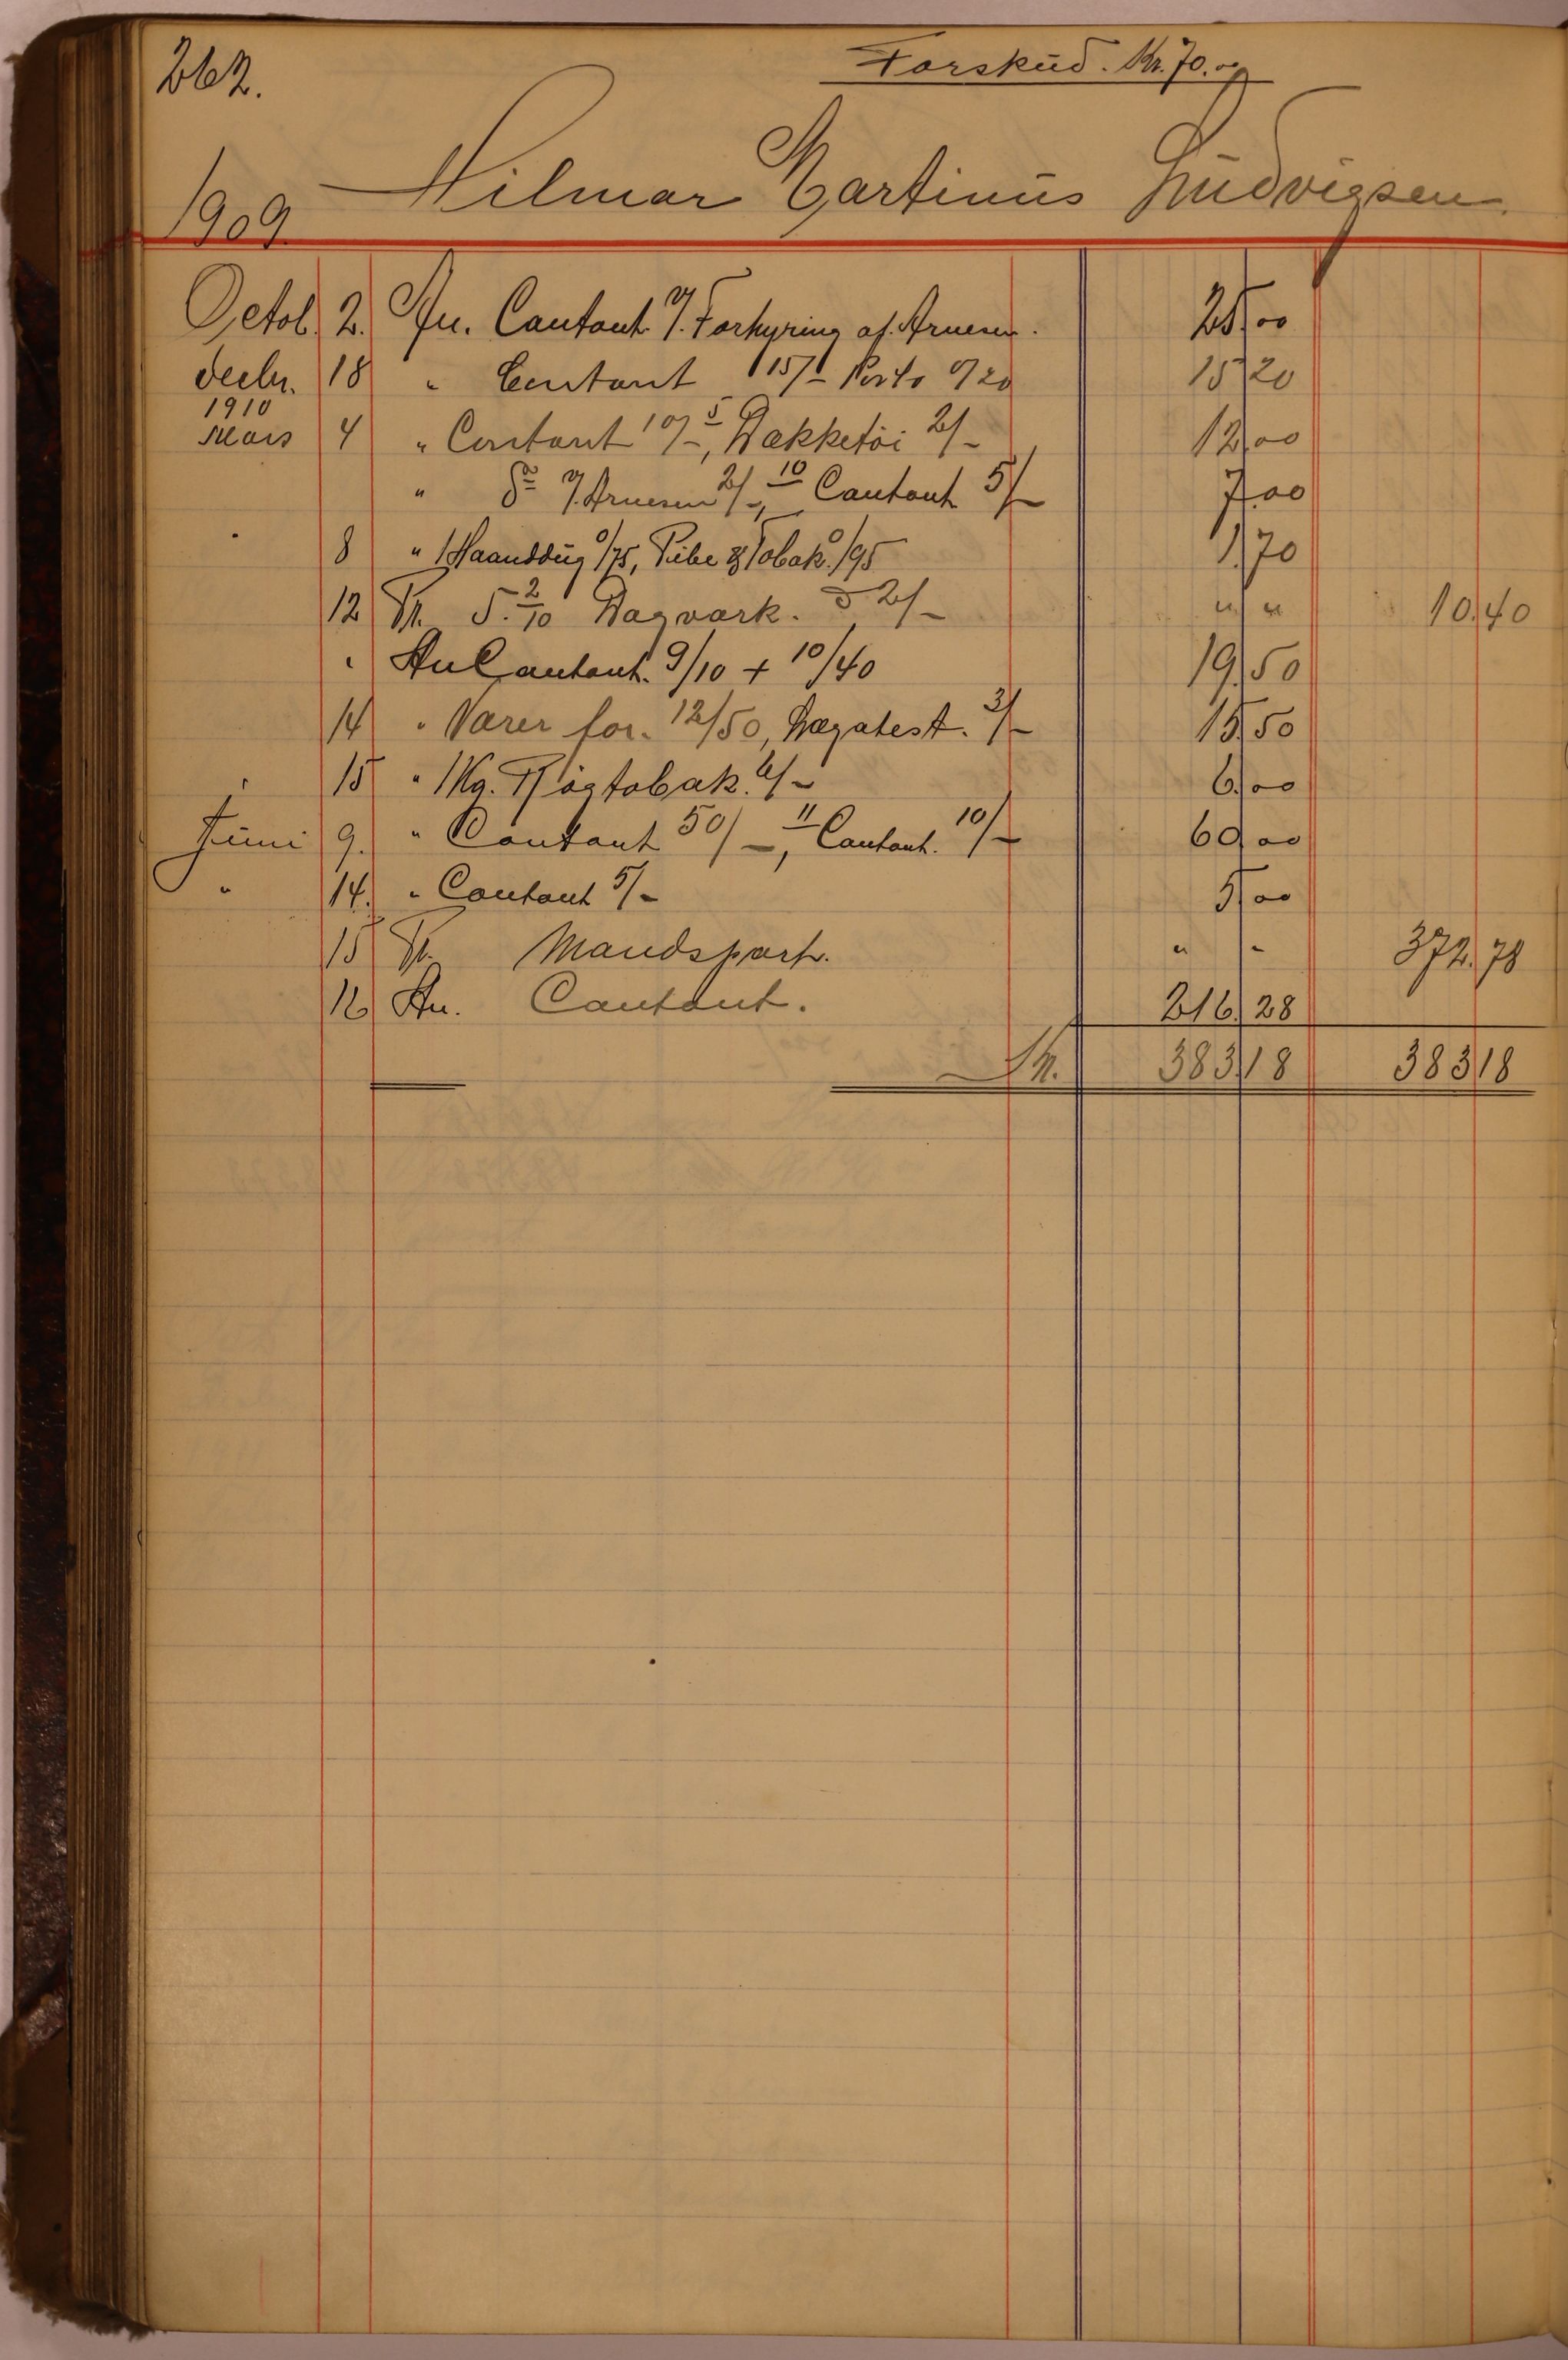 262.
Forskud. Kr. 70.00
1909. Hilmar Martinus Ludvigsen.
Octob. 2. An. Contant v/. Forhyring af Arnesen. 25,00
Decbr. 18 " Contant 15/- Porto 0/20 15,20
1910
Mars 4 " Contant 10/-, 5 Dækketøi 2/- 12,00
" Do v/. Arnesen 2/-, 10 Contant 5/- 7,00
8 " 1 Haanddug 0/75, Pibe & Tobak 0/95 1,70
12 Pr. 5. 2/10 Dagværk. à 2/- " " 10,40
" An Contant. 9/10 + 10/40 19,50
14 " Varer for. 12/50, Lægatest. 3/- 15,50
15 " 1 Kg. Røgtobak. 6/- 6,00
Juni 9. " Contant 50/-, 11 Contant. 10/- 60,00
" 14. " Contant 5/- 5,00
15 Pr. Mandspart. " - 372,78
16 An. Contant. 216,28
Kr. 383,18 383,18